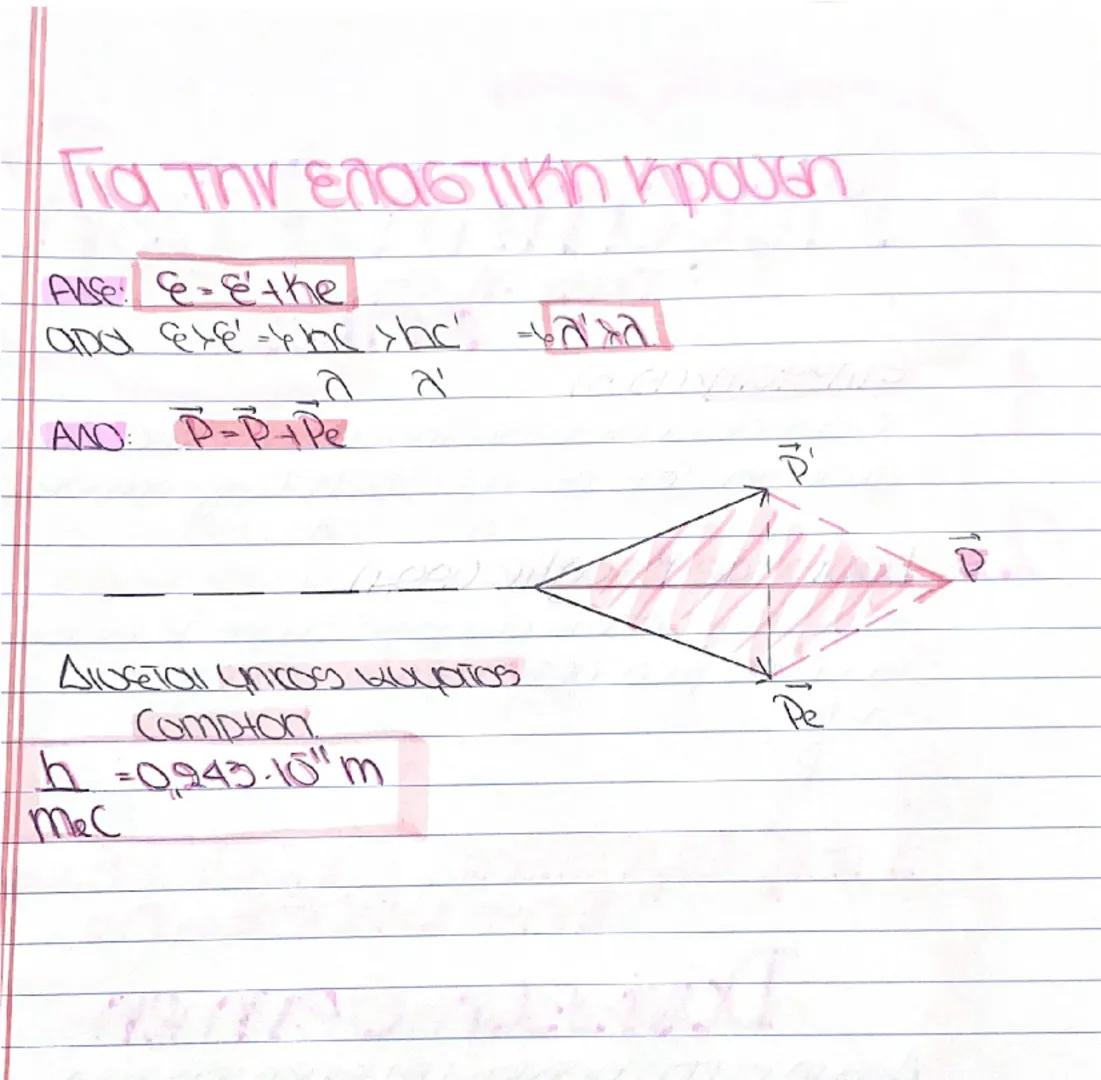 Για την ελαστική κρουση
ΑΔΕ: ε = ε' + Κe
αρα ε > ε' => hc/λ > hc'/λ' => λ' > λ
ΑΔΟ: P⃗ = P⃗ + P⃗e
P⃗'
P⃗
Δινεται μηκος κυματος
P⃗e
Compton.
h/meC = 0,243·10⁻¹¹ m